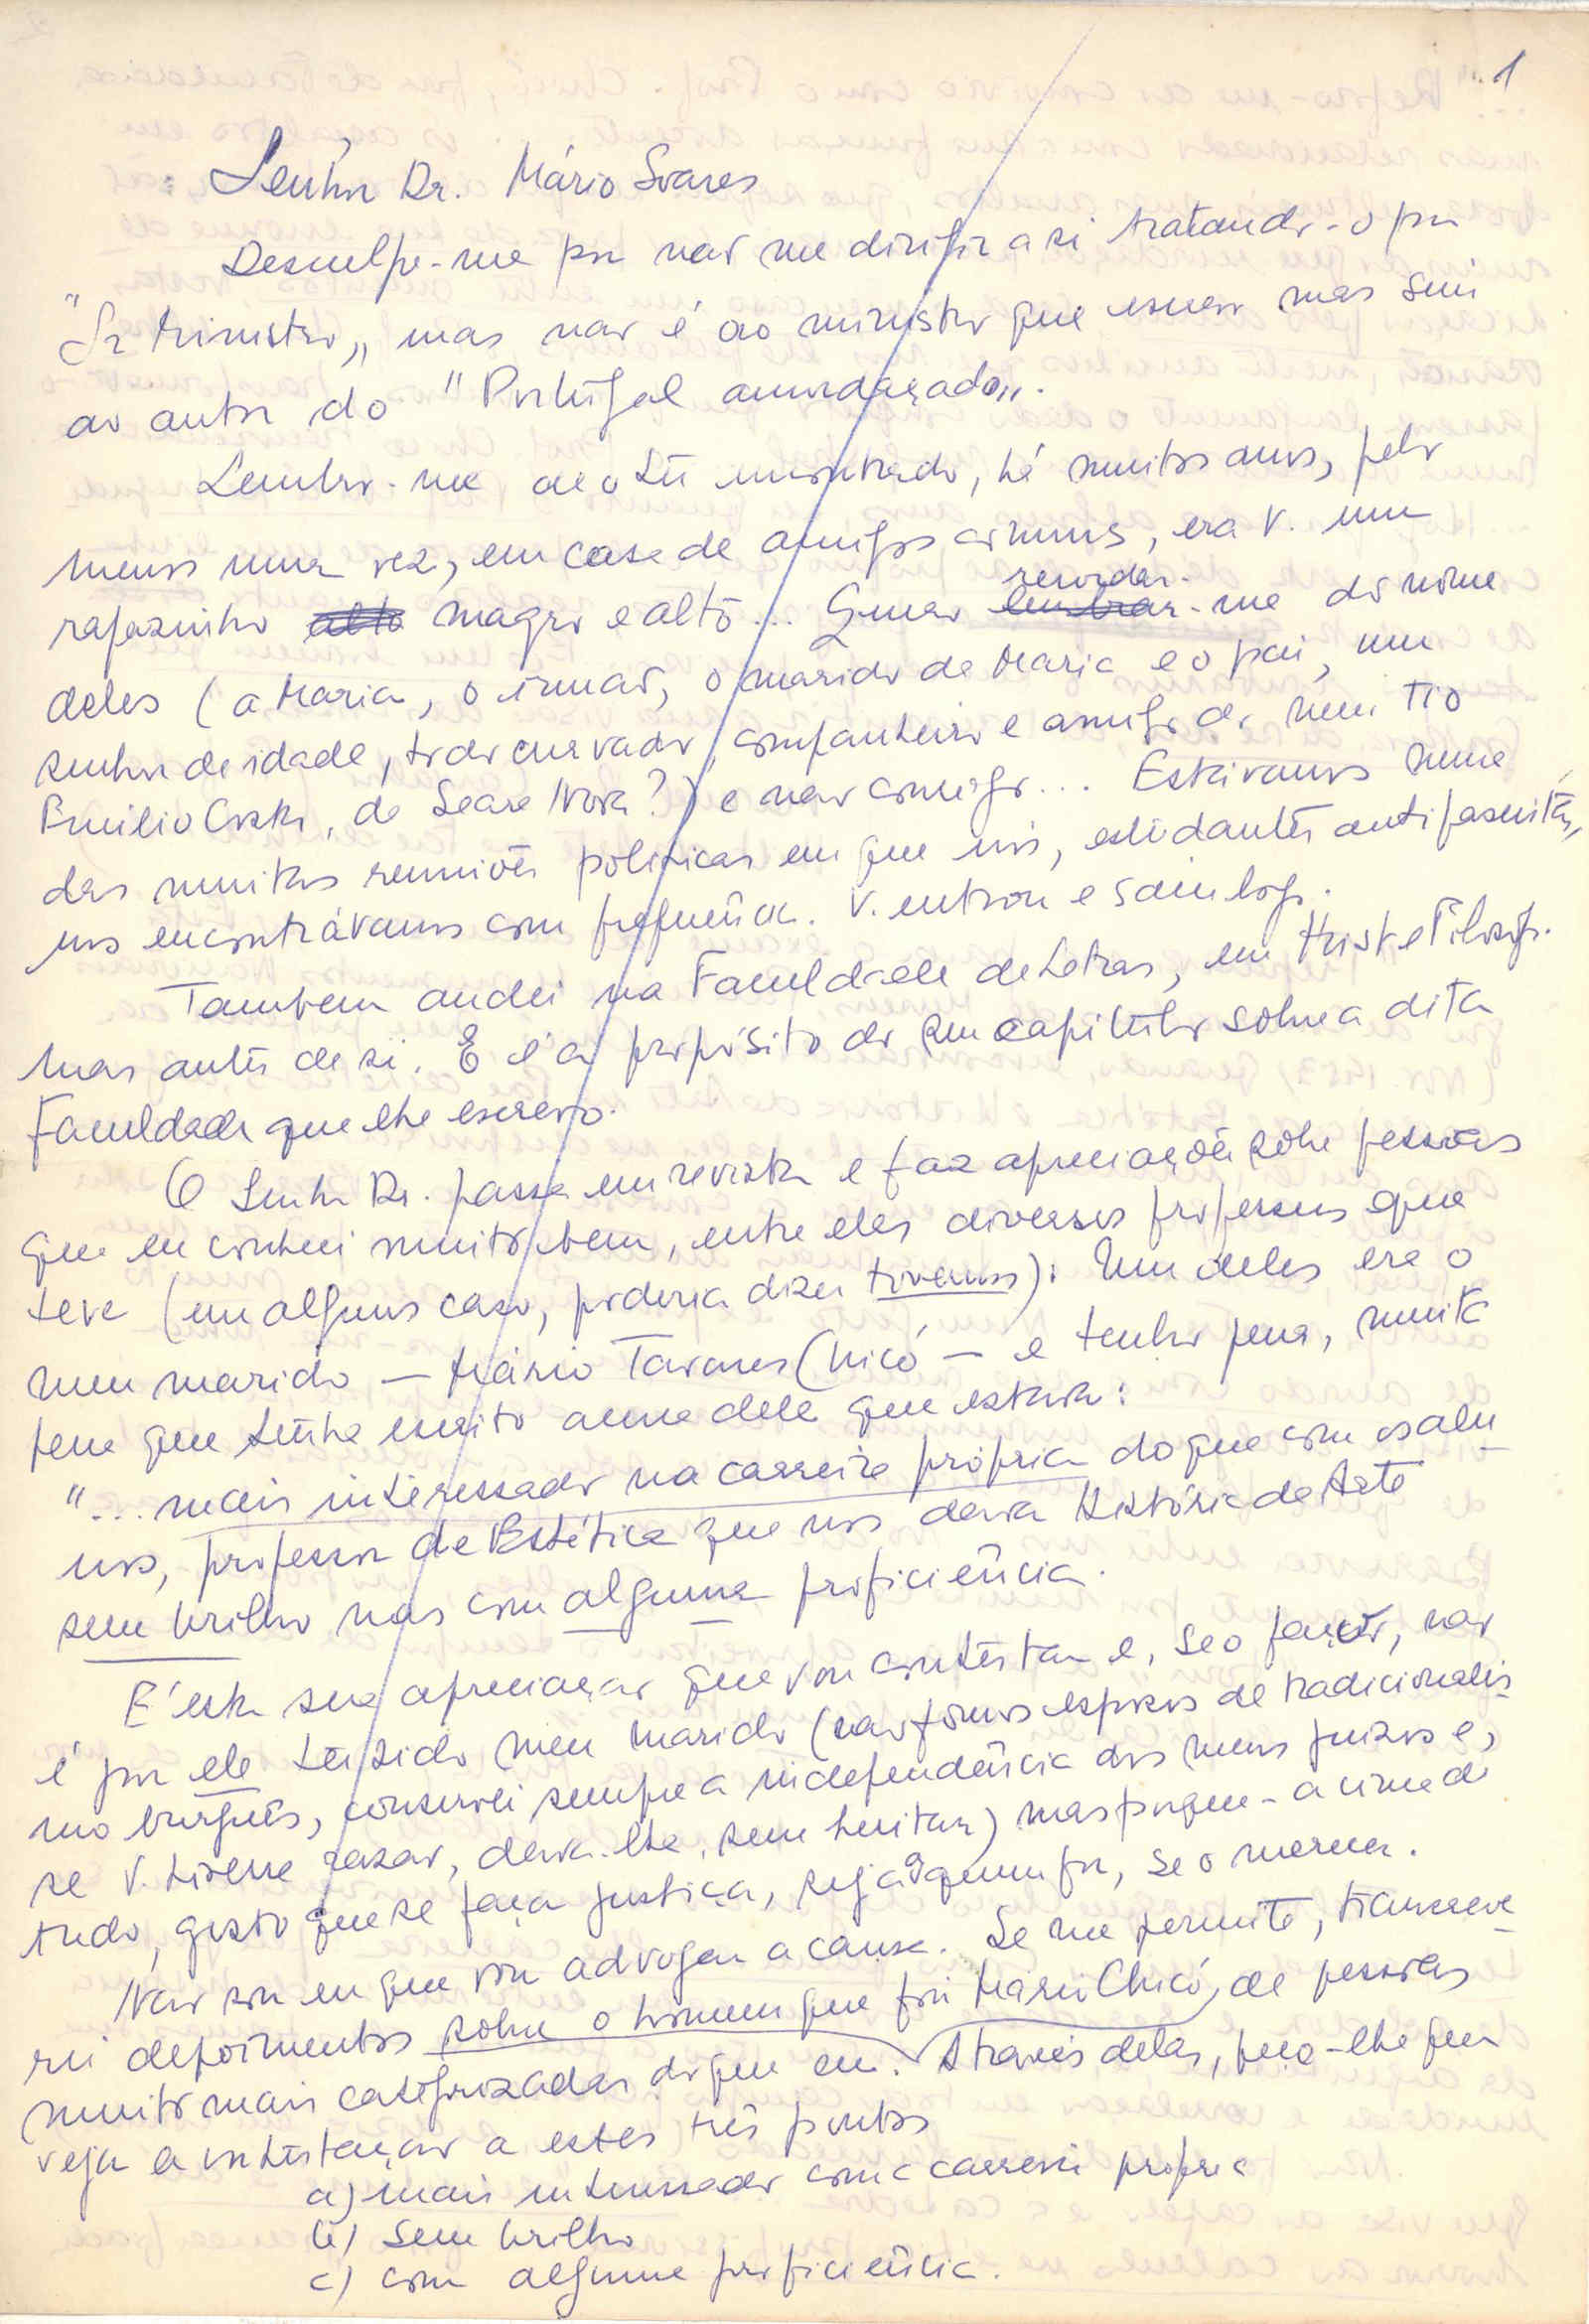 1
Senhor Dr. Mário Soares
Desculpe-me por não me dirigir a si tratando-o por
"Sr Ministro„ mas não é ao ministro que escrevo mas sim
ao autor do "Portugal amordaçado„.
Lembro-me de o ter encontrado, há muitos anos, pelo
menos uma vez, em casa de amigos comuns, era V. um
rapazinho alto magro e alto... Quero lembrar recordar-me do nome
deles (a Maria, o irmão, o marido da Maria e o pai, um
senhor de idade, todo curvado, companheiro e amigo do meu Tio
Emílio Costa, da Seara Nova?) e não consigo... Estávamos numa
das muitas reuniões políticas em que nós, estudantes antifascistas,
nos encontrávamos com frequência. V. entrou e saiu logo.
Tambem andei na Faculdade de Letras, em Hist e Filosof.
mas antes de si. E é a propósito do seu capítulo sobre a dita
Faculdade que lhe escrevo.
O Senhor Dr. passa em revista e faz apreciações sobre pessoas
que eu conheci muito bem, entre elas diversos professores que
teve (em alguns caso, poderia dizer tivemos): Um deles era o
meu marido — Mário Tavares Chicó — e tenho pena, muita
pena que tenha escrito acerca dele que estava:
"... mais interessado na carreira própria do que com os alu
nos, professor de Estética que nos dava História da Arte
sem brilho mas com alguma proficiência.
É esta sua apreciação que vou contestar e, se o faço, não
é por ele ter sido meu marido (não fomos esposos de tradicionalis
mo burguês, conservei sempre a independência dos meus juizos e,
se V. tivesse razão, dava-lha, sem hesitar) mas porque - acima de
tudo, gosto que se faça justiça, seja a quem for, se o merecer.
Não sou eu que vou advogar a causa. Se me permite, transcreve
rei depoimentos sobre o homem que foi Mário Chicó, de pessoas
muito mais categorizadas do que eu. Através delas, peço-lhe que
veja a contestação a estes três pontos
a) mais interessado com a carreira própria
b) Sem brilho
c) com alguma proficiência.